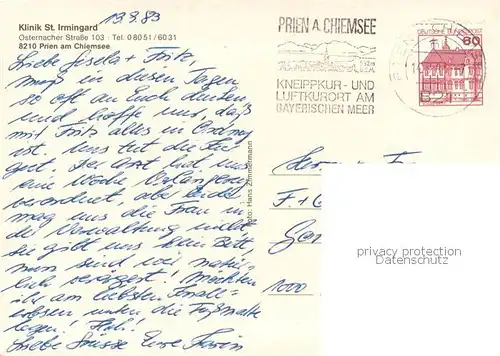 13.9.83
Klinik St. Irmingard
Osternacher Straße 103 · Tel. 0 80 51 / 60 31
8210 Prien am Chiemsee
PRIEN A. CHIEMSEE
KNEIPPKUR- UND
LUFTKURORT AM
BAYERISCHEN MEER
DEUTSCHE BUNDESPOST
60
Liebe Gisela + Fritz,
muß in diesen Tagen
so oft an Euch denken
und hoffe nur, daß
mit Fritz alles in Ordnung
ist. Uns tut die
gut. Der Arzt hat uns
eine Woche Verlängerung
verordnet, aber leider
mag uns die Frau in
der Verwaltung nicht,
sie gibt uns kein Bett,
nun sind wir natür-
lich verärgert! Möchten
ihr am liebsten Knall-
erbsen unter die Fußmatte
legen!
Liebe Grüsse Eure
Foto: Hans Zimmermann
F. + G
1000
privacy protection
Datenschutz